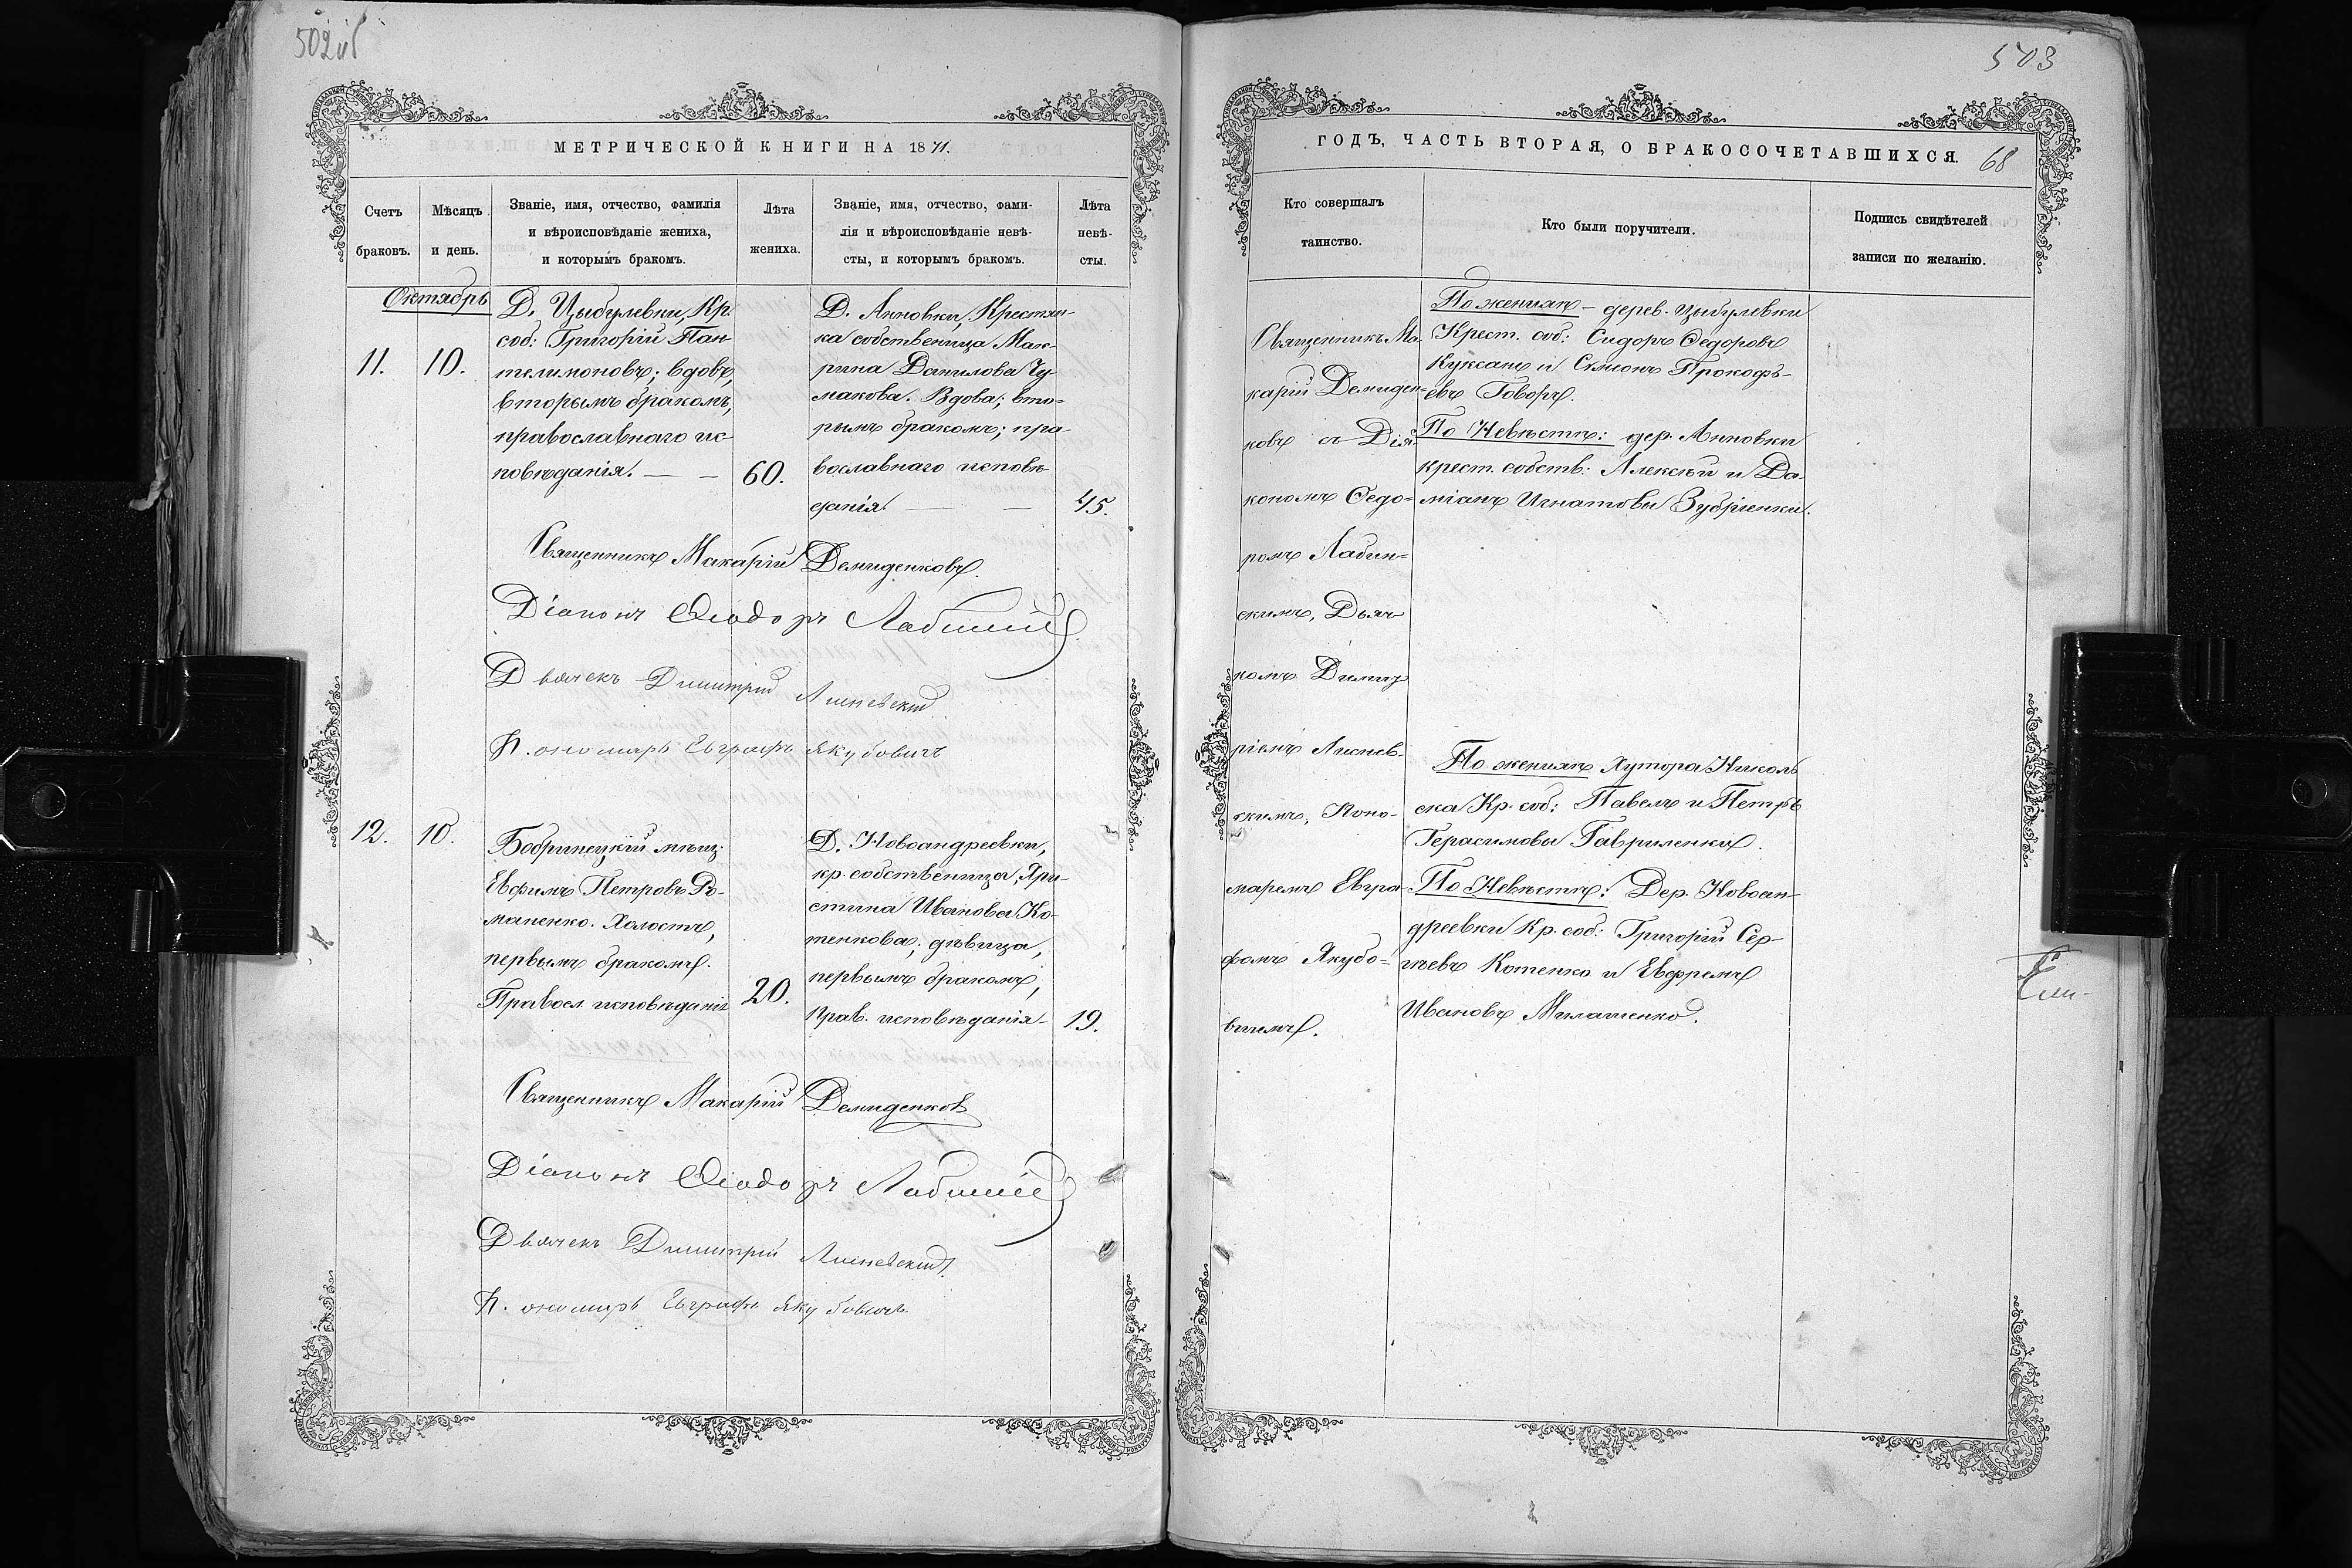 502об
МЕТРИЧЕСКОЙ КНИГИ НА 1871.
Счетъ
браковъ.
Мѣсяцъ
и день.
Званіе, имя, отчество, фамилія
и вѣроисповѣданіе жениха,
и которымъ бракомъ.
Лѣта
жениха.
Званіе, имя, отчество, фами-
лія и вѣроисповѣданіе невѣ-
сты, и которымъ бракомъ.
Лѣта
невѣ-
сты.
Октябрь
11.
10.
Д. Цыбулевки, Кр.
соб: Григорій Пан
телимоновъ; вдовъ,
вторымъ бракомъ,
православнаго ис
повѣданія. — —
60.
Д. Анновки, Крестьян-
ка собственица Мак-
рина Данилова Чу
макова. Вдова; вто-
рымъ бракомъ; пра-
вославнаго исповѣ
данія. — —
45.
Священникъ Макарій Демиденковъ.
Діаконъ Ѳеодоръ Лабинскій
Дьячекъ Димитрій Лисневскій
Пономарь Евграфъ Якубовичъ
12.
10.
Бобринецкій мѣщ:
Евфимъ Петровъ Ро-
маненко. Холостъ,
первымъ бракомъ.
Правосл. исповѣданія
20.
Д. Новоандреевки,
кр. собственица, Хри-
стина Иванова Ко-
тенкова; дѣвица,
первымъ бракомъ,
Прав. исповѣданія
19.
Священникъ Макарій Демиденковъ
Діаконъ Ѳеодоръ Лабинскій
Дьячекъ Димитрій Лисневскій
Пономарь Евграфъ Якубовичъ
503
ГОДЪ, ЧАСТЬ ВТОРАЯ, О БРАКОСОЧЕТАВШИХСЯ.
68
Кто совершалъ
таинство.
Кто были поручители.
Подпись свидѣтелей
записи по желанію.
Священникъ Ма-
карій Демиден-
ковъ съ Діа
кономъ Ѳедо-
ромъ Лабин-
скимъ, Дьяч
комъ Димит
ріемъ Лиснев-
скимъ, Поно-
маремъ Евгра-
фомъ Якубо-
вичемъ.
По женихѣ – дерев. Цыбулевки
Крест. соб: Сидоръ Ѳедоровъ
Куксанъ и Семіонъ Прокофь-
евъ Говоръ.
По Невѣстѣ: дер. Анновки
крест. собств: Алексѣй и Да-
міанъ Игнатовы Зубріенки.
По женихѣ Хутора Николь
ска Кр. соб: Павелъ и Петръ
Герасимовы Гавриленки.
По Невѣстѣ: Дер. Новоан-
дреевки Кр. соб: Григорій Сер-
гѣевъ Котенко и Евфремъ
Ивановъ Милашенко.